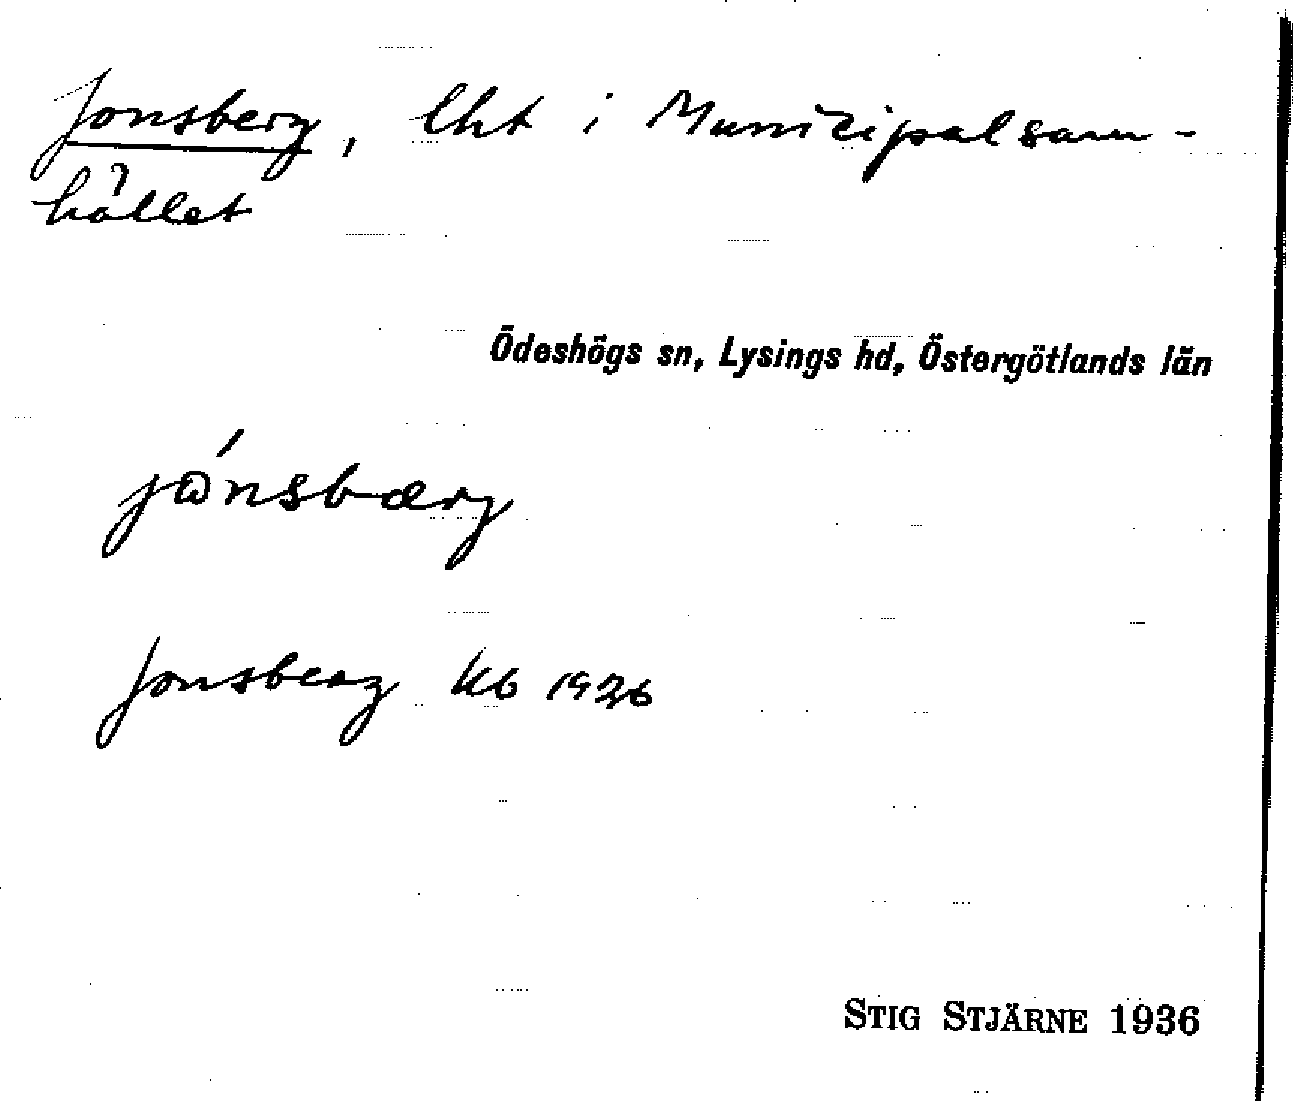 Jonsberg, lht i Municipalsam-
hället
Ödeshögs sn, Lysings hd, Östergötlands län
jónsbærg
Jonsberg Kb 1926
STIG STJÄRNE 1936